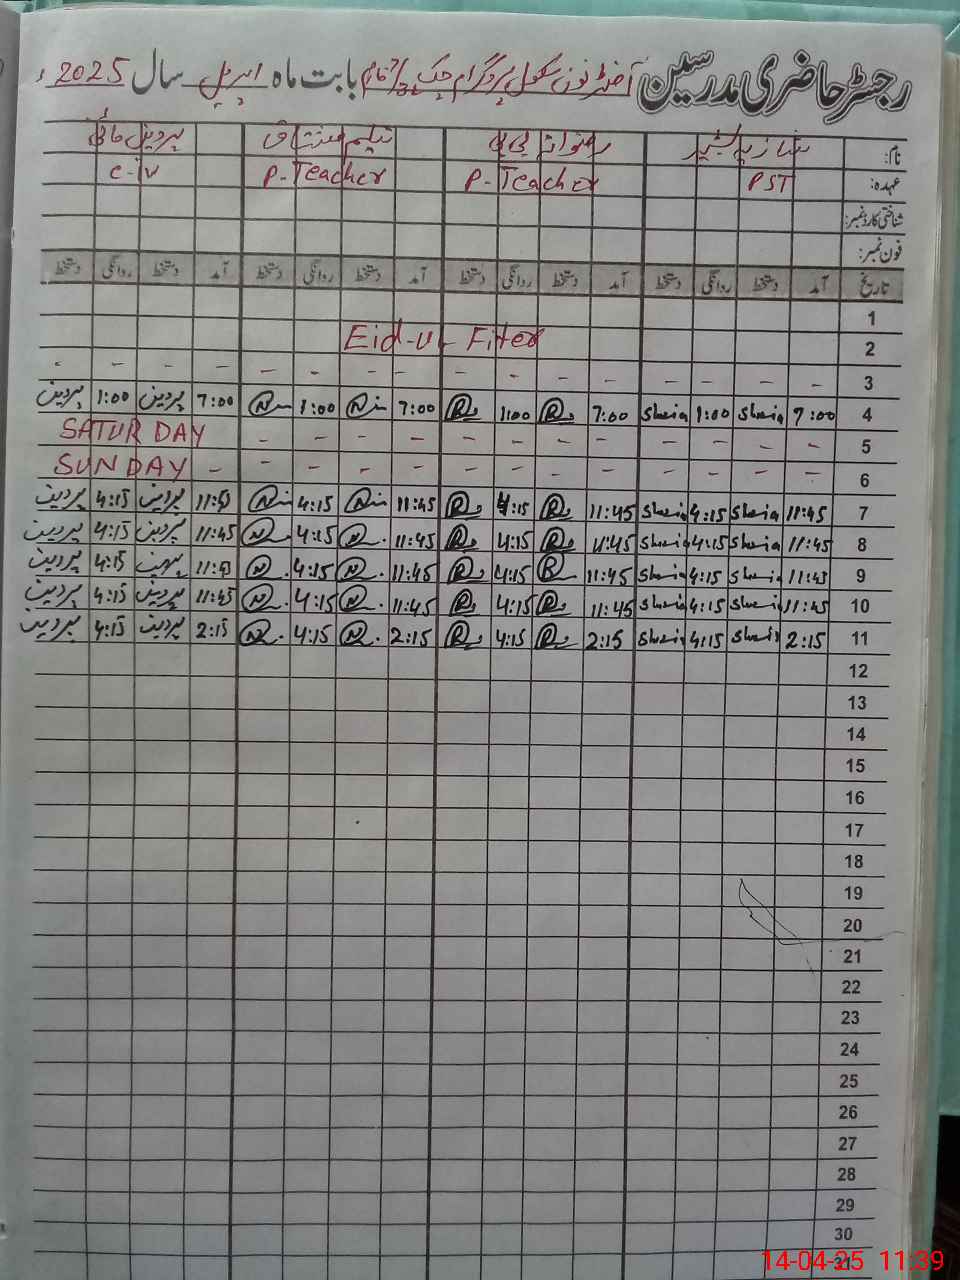 رجسٹر حاضری مدرسین آفٹر نون سکول پروگرام چک بابت ماہ اپریل سال 2025ء
نام: شازیہ بشیر رضوانہ بی بی نیلم مشتاق پروین مائی
عہدہ: PST P-Teacher P-Teacher C-iv
شناختی کارڈ نمبر:
فون نمبر:
تاریخ آمد دستخط روانگی دستخط آمد دستخط روانگی دستخط آمد دستخط روانگی دستخط آمد دستخط روانگی دستخط
1
2 Eid-ul-Fiter
3 - - - - - - - - - - - - - - - -
4 7:00 1:00 7:00 1:00 7:00 1:00 7:00 پروین 1:00 پروین
5 - - - - - - - - - - - - SATURDAY
6 - - - - - - - - - - - - - SUNDAY
7 11:45 4:15 11:45 4:15 11:45 4:15 پروین 4:15 پروین
8 11:45 4:15 11:45 4:15 11:45 4:15 11:45 پروین 4:15 پروین
9 11:45 4:15 11:45 4:15 11:45 4:15 پروین 4:15 پروین
10 11:45 4:15 11:45 4:15 11:45 4:15 11:45 پروین 4:15 پروین
11 2:15 4:15 2:15 4:15 2:15 4:15 2:15 پروین 4:15 پروین
12
13
14
15
16
17
18
19
20
21
22
23
24
25
26
27
28
29
30
31
14-04-25 11:39